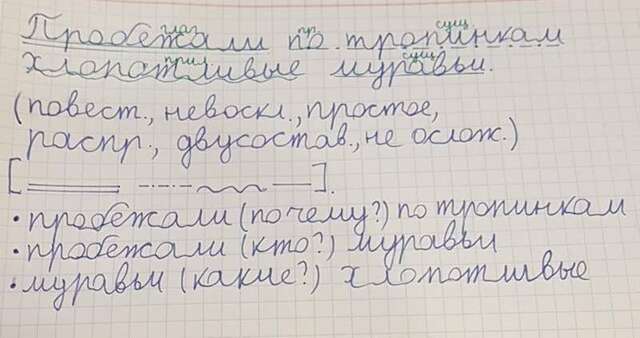 глаг пр. сущ
Пробежали по тропинкам
прил сущ
хлопотливые муравьи.
(повест., невоскл., простое,
распр., двусостав., не ослож.)
[ ].
• пробежали (почему?) по тропинкам
• пробежали (кто?) муравьи
• муравьи (какие?) хлопотливые